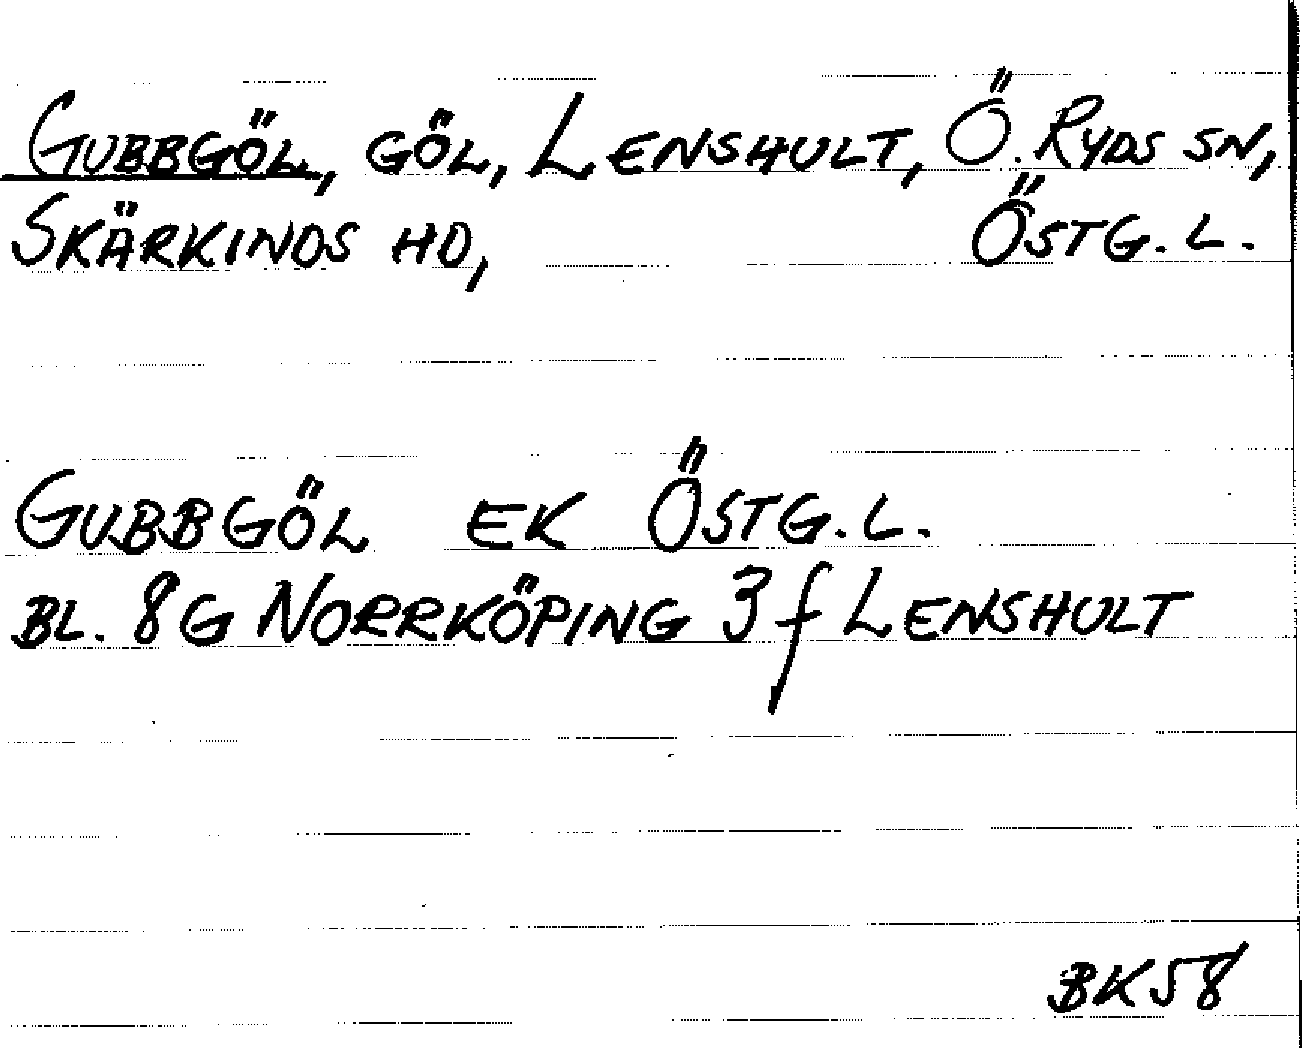 GUBBGÖL, GÖL, LENSHULT, Ö. RYDS SN,
SKÄRKINDS HD, ÖSTG. L.
GUBBGÖL EK ÖSTG. L.
BL. 8G NORRKÖPING 3f LENSHULT
BK58